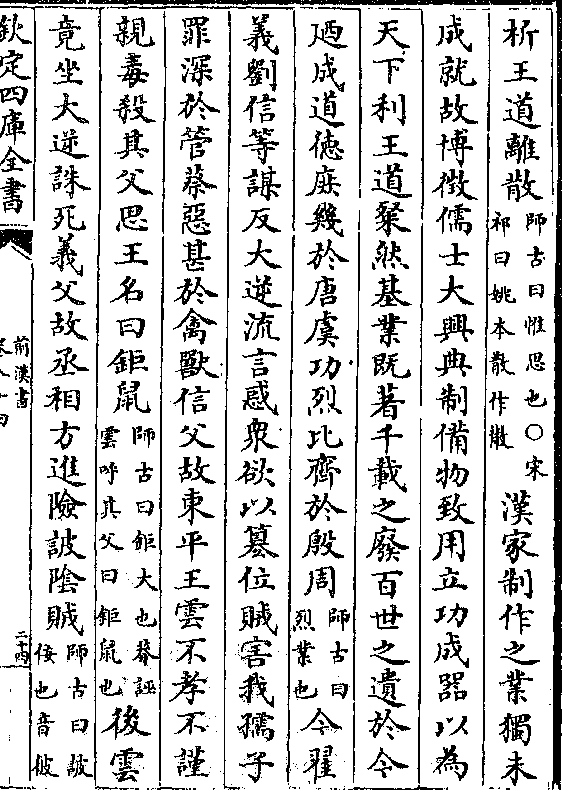 析王道離散師古曰惟思也○宋祁曰姚本散作㪚漢家制作之業獨未
成就故博徵儒士大興典制備物致用立功成器以為
天下利王道粲然基業既著千載之廢百世之遺於今
廼成道德庶幾於唐虞功烈比齊於殷周師古曰烈業也今翟
義劉信等謀反大逆流言惑衆欲以篡位賊害我孺子
罪深於管蔡惡甚於禽獸信父故東平王雲不孝不謹
親毒殺其父思王名曰鉅鼠師古曰鉅大也莽誣雲呼其父曰鉅鼠也後雲
竟坐大逆誅死義父故丞相方進險詖陰賊師古曰詖佞也音彼
欽定四庫全書
前漢書
卷八十四
二十四